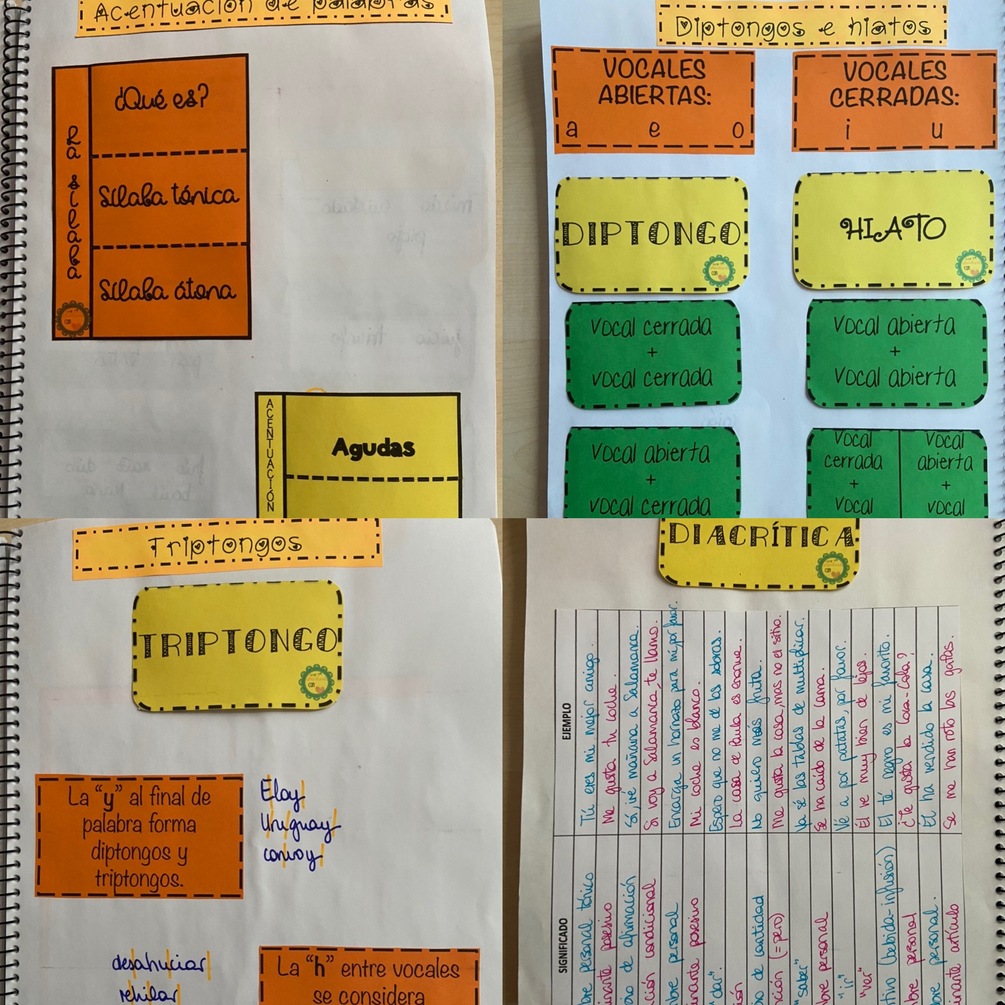 Acentuación de palabras
La sílaba
¿Qué es?
Sílaba tónica
Sílaba átona
ACENTUACIÓN
Agudas
Diptongos e hiatos
VOCALES
ABIERTAS:
a e o
VOCALES
CERRADAS:
i u
DIPTONGO
HIATO
vocal cerrada
+
vocal cerrada
vocal abierta
+
vocal abierta
vocal abierta
+
vocal cerrada
vocal
cerrada
+
vocal
vocal
abierta
+
vocal
Triptongos
TRIPTONGO
La "y" al final de
palabra forma
diptongos y
triptongos.
Eloy
Uruguay
convoy
desahuciar
rehilar
La "h" entre vocales
se considera
DIACRÍTICA
EJEMPLO
Tú eres mi mejor amigo.
Me gusta tu coche.
Sí, iré mañana a Salamanca.
Si voy a Salamanca, te llamo.
Encarga un hornazo para mí por favor.
Mi coche es blanco.
Espero que no me dé las sobras.
La casa de Paula es enorme.
No quiero más fruta.
Me gusta la casa, mas no el sitio.
Ya sé las tablas de multiplicar.
Se ha caído de la cama
Ve a por patatas, por favor.
Él ve muy bien de lejos.
El té negro es mi favorito.
¿Te gusta la Coca-Cola?
Él ha vendido la casa.
Se me han roto las gafas.
SIGNIFICADO
bre personal tónico
inante posesivo
bio de afirmación
ción condicional
bre personal
inante posesivo
"dar".
ción
io de cantidad
ción (=pero)
"saber"
bre personal
"ir"
"ver"
tivo (bebida-infusión)
bre personal
bre personal.
inante artículo